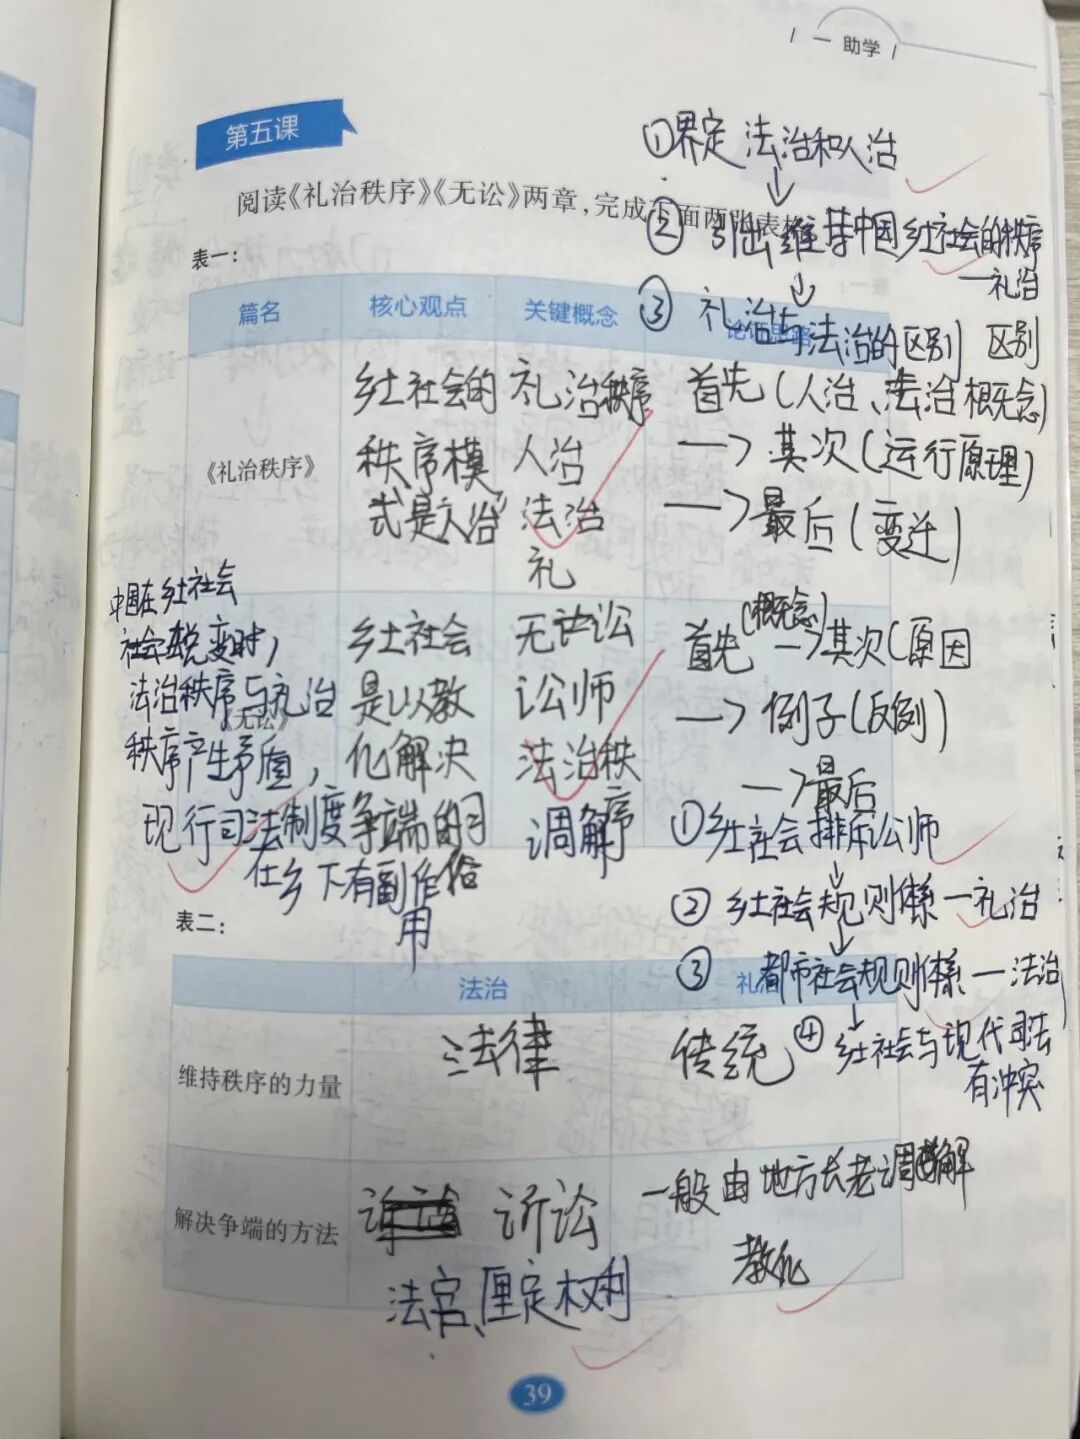 一 助学
第五课
阅读《礼治秩序》《无讼》两章，完成下面两张表格
①界定 法治和人治
↓
② 引出 维持中国乡土社会的秩序
—礼治
↓
③ 礼治与法治的区别 区别
表一：
篇名 核心观点 关键概念 论证思路
《礼治秩序》
乡土社会的
秩序模
式是"人治"
礼治秩序
人治
法治
礼
首先(人治、法治概念)
—> 其次(运行原理)
—> 最后(变迁)
中国在乡土社会
社会蜕变时，
法治秩序与礼治
秩序产生矛盾，
现行司法制度
在乡下有副作
用
《无讼》
乡土社会
是以教
化解决
争端的习
俗
无讼
讼师
法治秩
序
调解
首先(概念)—>其次(原因
—> 例子(反例)
—>最后
①乡土社会排斥讼师
↓
② 乡土社会规则体系—礼治
↓
③ 都市社会规则体系—法治
↓
④ 乡土社会与现代司法
有冲突
表二：
法治 礼治
维持秩序的力量 法律 传统
解决争端的方法 诉讼 一般由地方长老调解
教化
法官、厘定权利
39